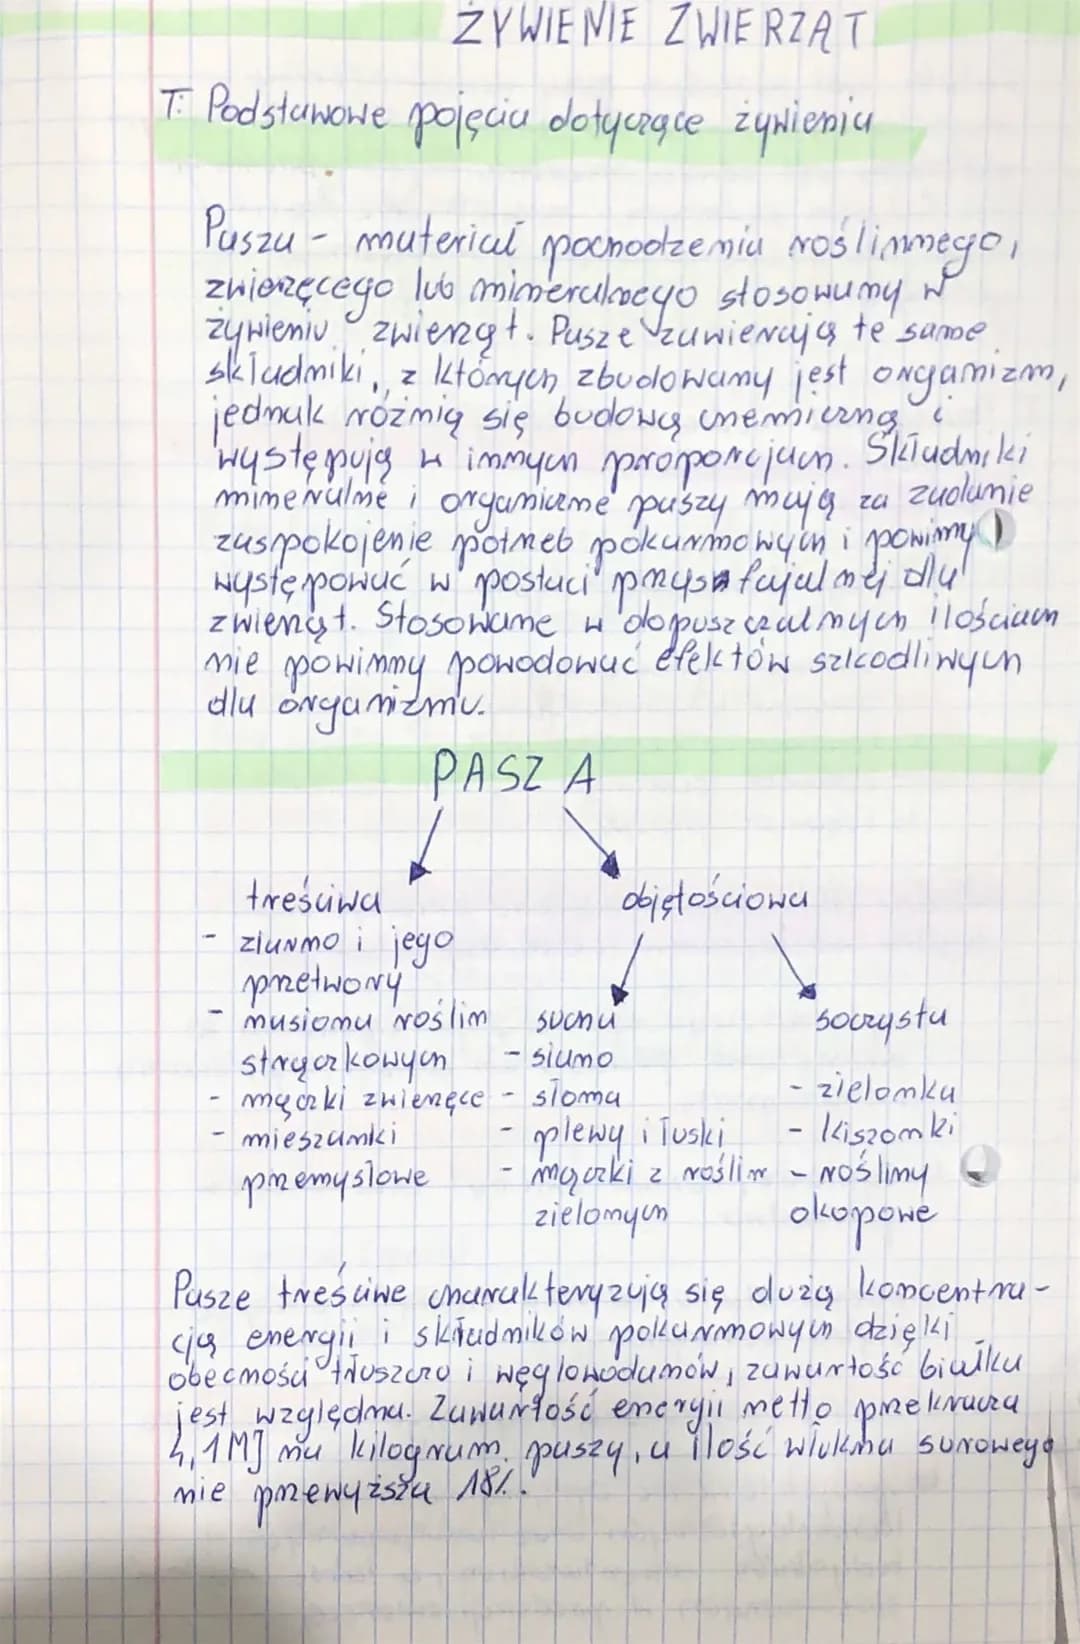 ŻYWIENIE ZWIERZĄT
T: Podstawowe pojęcia dotyczące żywienia
Pasza - materiał pochodzenia roślinnego,
zwierzęcego lub mineralnego stosowany w
żywieniu zwierząt. Pasze zawierają te same
składniki, z których zbudowany jest organizm,
jednak różnią się budową chemiczną i
występują w innych proporcjach. Składniki
mineralne i organiczne paszy mają za zadanie
zaspokojenie potrzeb pokarmowych i powinny
występować w postaci przyswajalnej dla
zwierząt. Stosowane w dopuszczalnych ilościach
nie powinny powodować efektów szkodliwych
dla organizmu.
PASZA
treściwa objętościowa
- ziarno i jego
przetwory
- nasiona roślin sucha soczysta
strączkowych - siano
- mączki zwierzęce - słoma - zielonka
- mieszanki - plewy i łuski - kiszonki
przemysłowe - mączki z roślin - rośliny
zielonych okopowe
Pasze treściwe charakteryzują się dużą koncentra-
cją energii i składników pokarmowych dzięki
obecności tłuszczu i węglowodanów, zawartość białka
jest względna. Zawartość energii netto przekracza
4,1MJ na kilogram paszy, a ilość włókna surowego
nie przewyższa 18%.